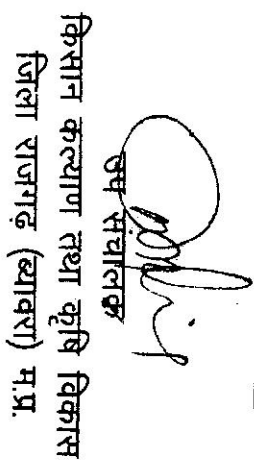 उप संचालक
किसान कल्याण तथा कृषि विकास
जिला राजगढ़ (ब्यावरा) म.प्र.